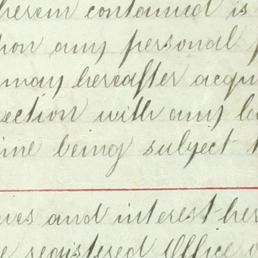 herein contained is
tion any personal
may hereafter acqu
ection with any
time being subject
ves and interest her
registered Office